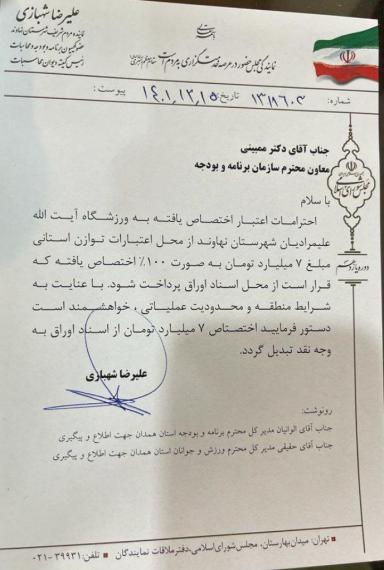 علیرضا شهبازی
نماینده مردم شریف شهرستان نهاوند
عضو کمیسیون برنامه و بودجه و محاسبات
رئیس کمیته دیوان محاسبات
نمایندگی مجلس حضور در عرصه خدمتگزاری به مردم است
شماره:
تاریخ: ۱۴۰۱,۱۲,۱۵
پیوست:
جناب آقای دکتر ممبینی
معاون محترم سازمان برنامه و بودجه
با سلام
احترامات اعتبار اختصاص یافته به ورزشگاه آیت الله
علیمرادیان شهرستان نهاوند از محل اعتبارات توازن استانی
مبلغ ۷ میلیارد تومان به صورت ۱۰۰٪ اختصاص یافته که
قرار است از محل اسناد اوراق پرداخت شود. با عنایت به
شرایط منطقه و محدودیت عملیاتی، خواهشمند است
دستور فرمایید اختصتاص ۷ میلیارد تومان از اسناد اوراق به
وجه نقد تبدیل گردد.
علیرضا شهبازی
مجلس شورای اسلامی
دوره یازدهم
رونوشت:
جناب آقای الوانیان مدیر کل محترم برنامه و بودجه استان همدان جهت اطلاع و پیگیری
جناب آقای حقیقی مدیر کل محترم ورزش و جوانان استان همدان جهت اطلاع و پیگیری
■ تهران: میدان بهارستان، مجلس شورای اسلامی، دفتر ملاقات نمایندگان ■ تلفن: ۳۹۹۳۱-۰۲۱